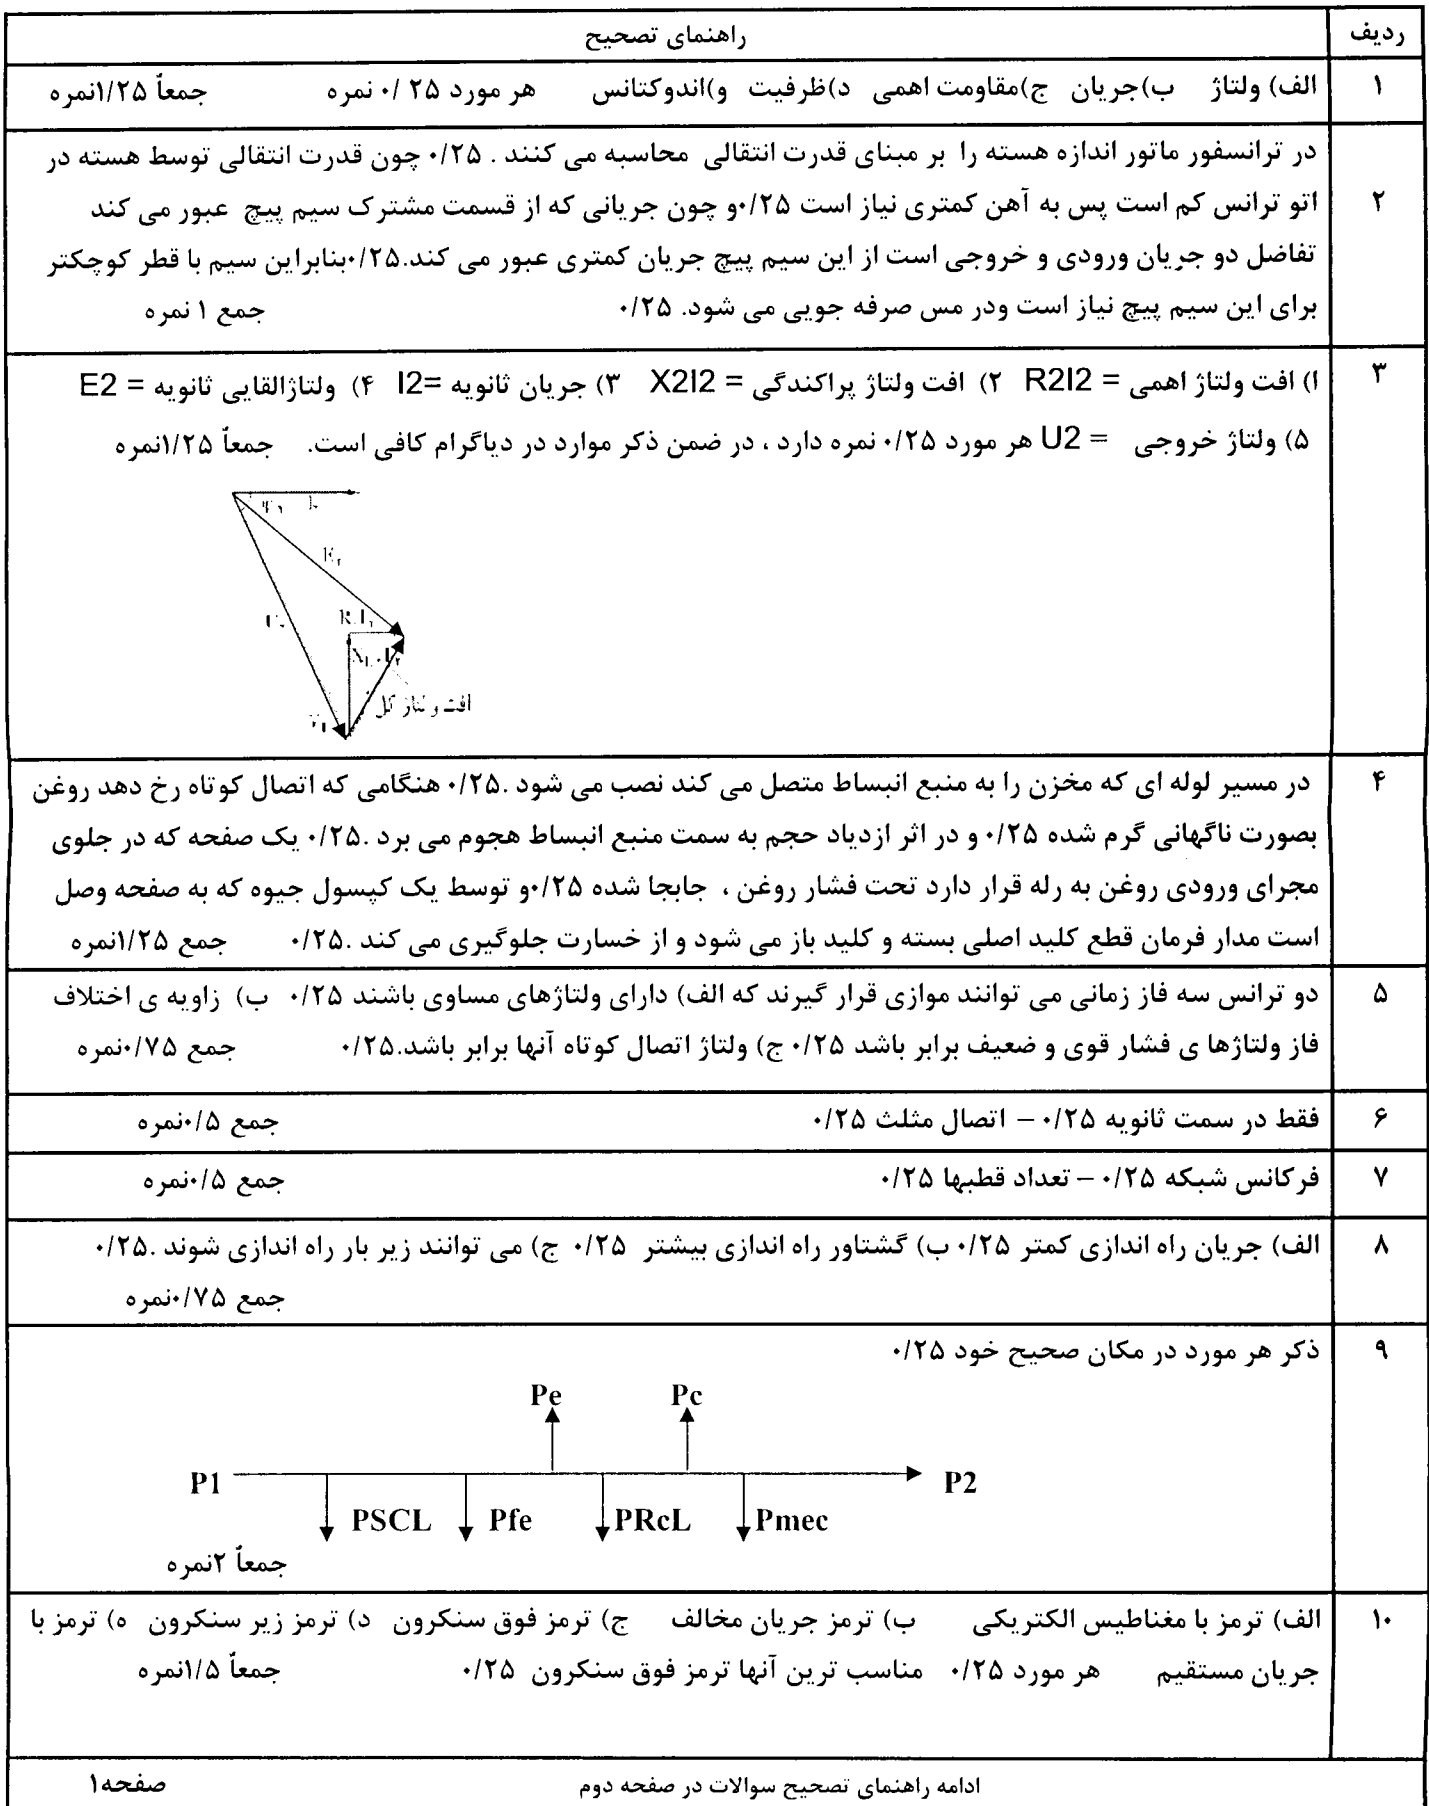 ردیف راهنمای تصحیح
۱ الف) ولتاژ ب)جریان ج)مقاومت اهمی د)ظرفیت و)اندوکتانس هر مورد ۲۵ /۰ نمره جمعاً ۱/۲۵نمره
در ترانسفور ماتور اندازه هسته را بر مبنای قدرت انتقالی محاسبه می کنند . ۰/۲۵ چون قدرت انتقالی توسط هسته در
۲ اتو ترانس کم است پس به آهن کمتری نیاز است ۰/۲۵و چون جریانی که از قسمت مشترک سیم پیچ عبور می کند
تفاضل دو جریان ورودی و خروجی است از این سیم پیچ جریان کمتری عبور می کند.۰/۲۵بنابراین سیم با قطر کوچکتر
برای این سیم پیچ نیاز است ودر مس صرفه جویی می شود. ۰/۲۵ جمع ۱ نمره
۳ ا) افت ولتاژ اهمی = R2I2 ۲) افت ولتاژ پراکندگی = X2I2 ۳) جریان ثانویه =I2 ۴) ولتاژالقایی ثانویه = E2
۵) ولتاژ خروجی = U2 هر مورد ۰/۲۵ نمره دارد ، در ضمن ذکر موارد در دیاگرام کافی است. جمعاً ۱/۲۵نمره
افت ولتاژ کل
۴ در مسیر لوله ای که مخزن را به منبع انبساط متصل می کند نصب می شود .۰/۲۵ هنگامی که اتصال کوتاه رخ دهد روغن
بصورت ناگهانی گرم شده ۰/۲۵ و در اثر ازدیاد حجم به سمت منبع انبساط هجوم می برد .۰/۲۵ یک صفحه که در جلوی
مجرای ورودی روغن به رله قرار دارد تحت فشار روغن ، جابجا شده ۰/۲۵و توسط یک کپسول جیوه که به صفحه وصل
است مدار فرمان قطع کلید اصلی بسته و کلید باز می شود و از خسارت جلوگیری می کند .۰/۲۵ جمع ۱/۲۵نمره
۵ دو ترانس سه فاز زمانی می توانند موازی قرار گیرند که الف) دارای ولتاژهای مساوی باشند ۰/۲۵ ب) زاویه ی اختلاف
فاز ولتاژها ی فشار قوی و ضعیف برابر باشد ۰/۲۵ ج) ولتاژ اتصال کوتاه آنها برابر باشد.۰/۲۵ جمع ۰/۷۵نمره
۶ فقط در سمت ثانویه ۰/۲۵ – اتصال مثلث ۰/۲۵ جمع ۰/۵نمره
۷ فرکانس شبکه ۰/۲۵ – تعداد قطبها ۰/۲۵ جمع ۰/۵نمره
۸ الف) جریان راه اندازی کمتر ۰/۲۵ ب) گشتاور راه اندازی بیشتر ۰/۲۵ ج) می توانند زیر بار راه اندازی شوند .۰/۲۵
جمع ۰/۷۵نمره
۹ ذکر هر مورد در مکان صحیح خود ۰/۲۵
Pe Pc
P1 P2
PSCL Pfe PRcL Pmec
جمعاً ۲نمره
۱۰ الف) ترمز با مغناطیس الکتریکی ب) ترمز جریان مخالف ج) ترمز فوق سنکرون د) ترمز زیر سنکرون ه) ترمز با
جریان مستقیم هر مورد ۰/۲۵ مناسب ترین آنها ترمز فوق سنکرون ۰/۲۵ جمعاً ۱/۵نمره
ادامه راهنمای تصحیح سوالات در صفحه دوم صفحه۱